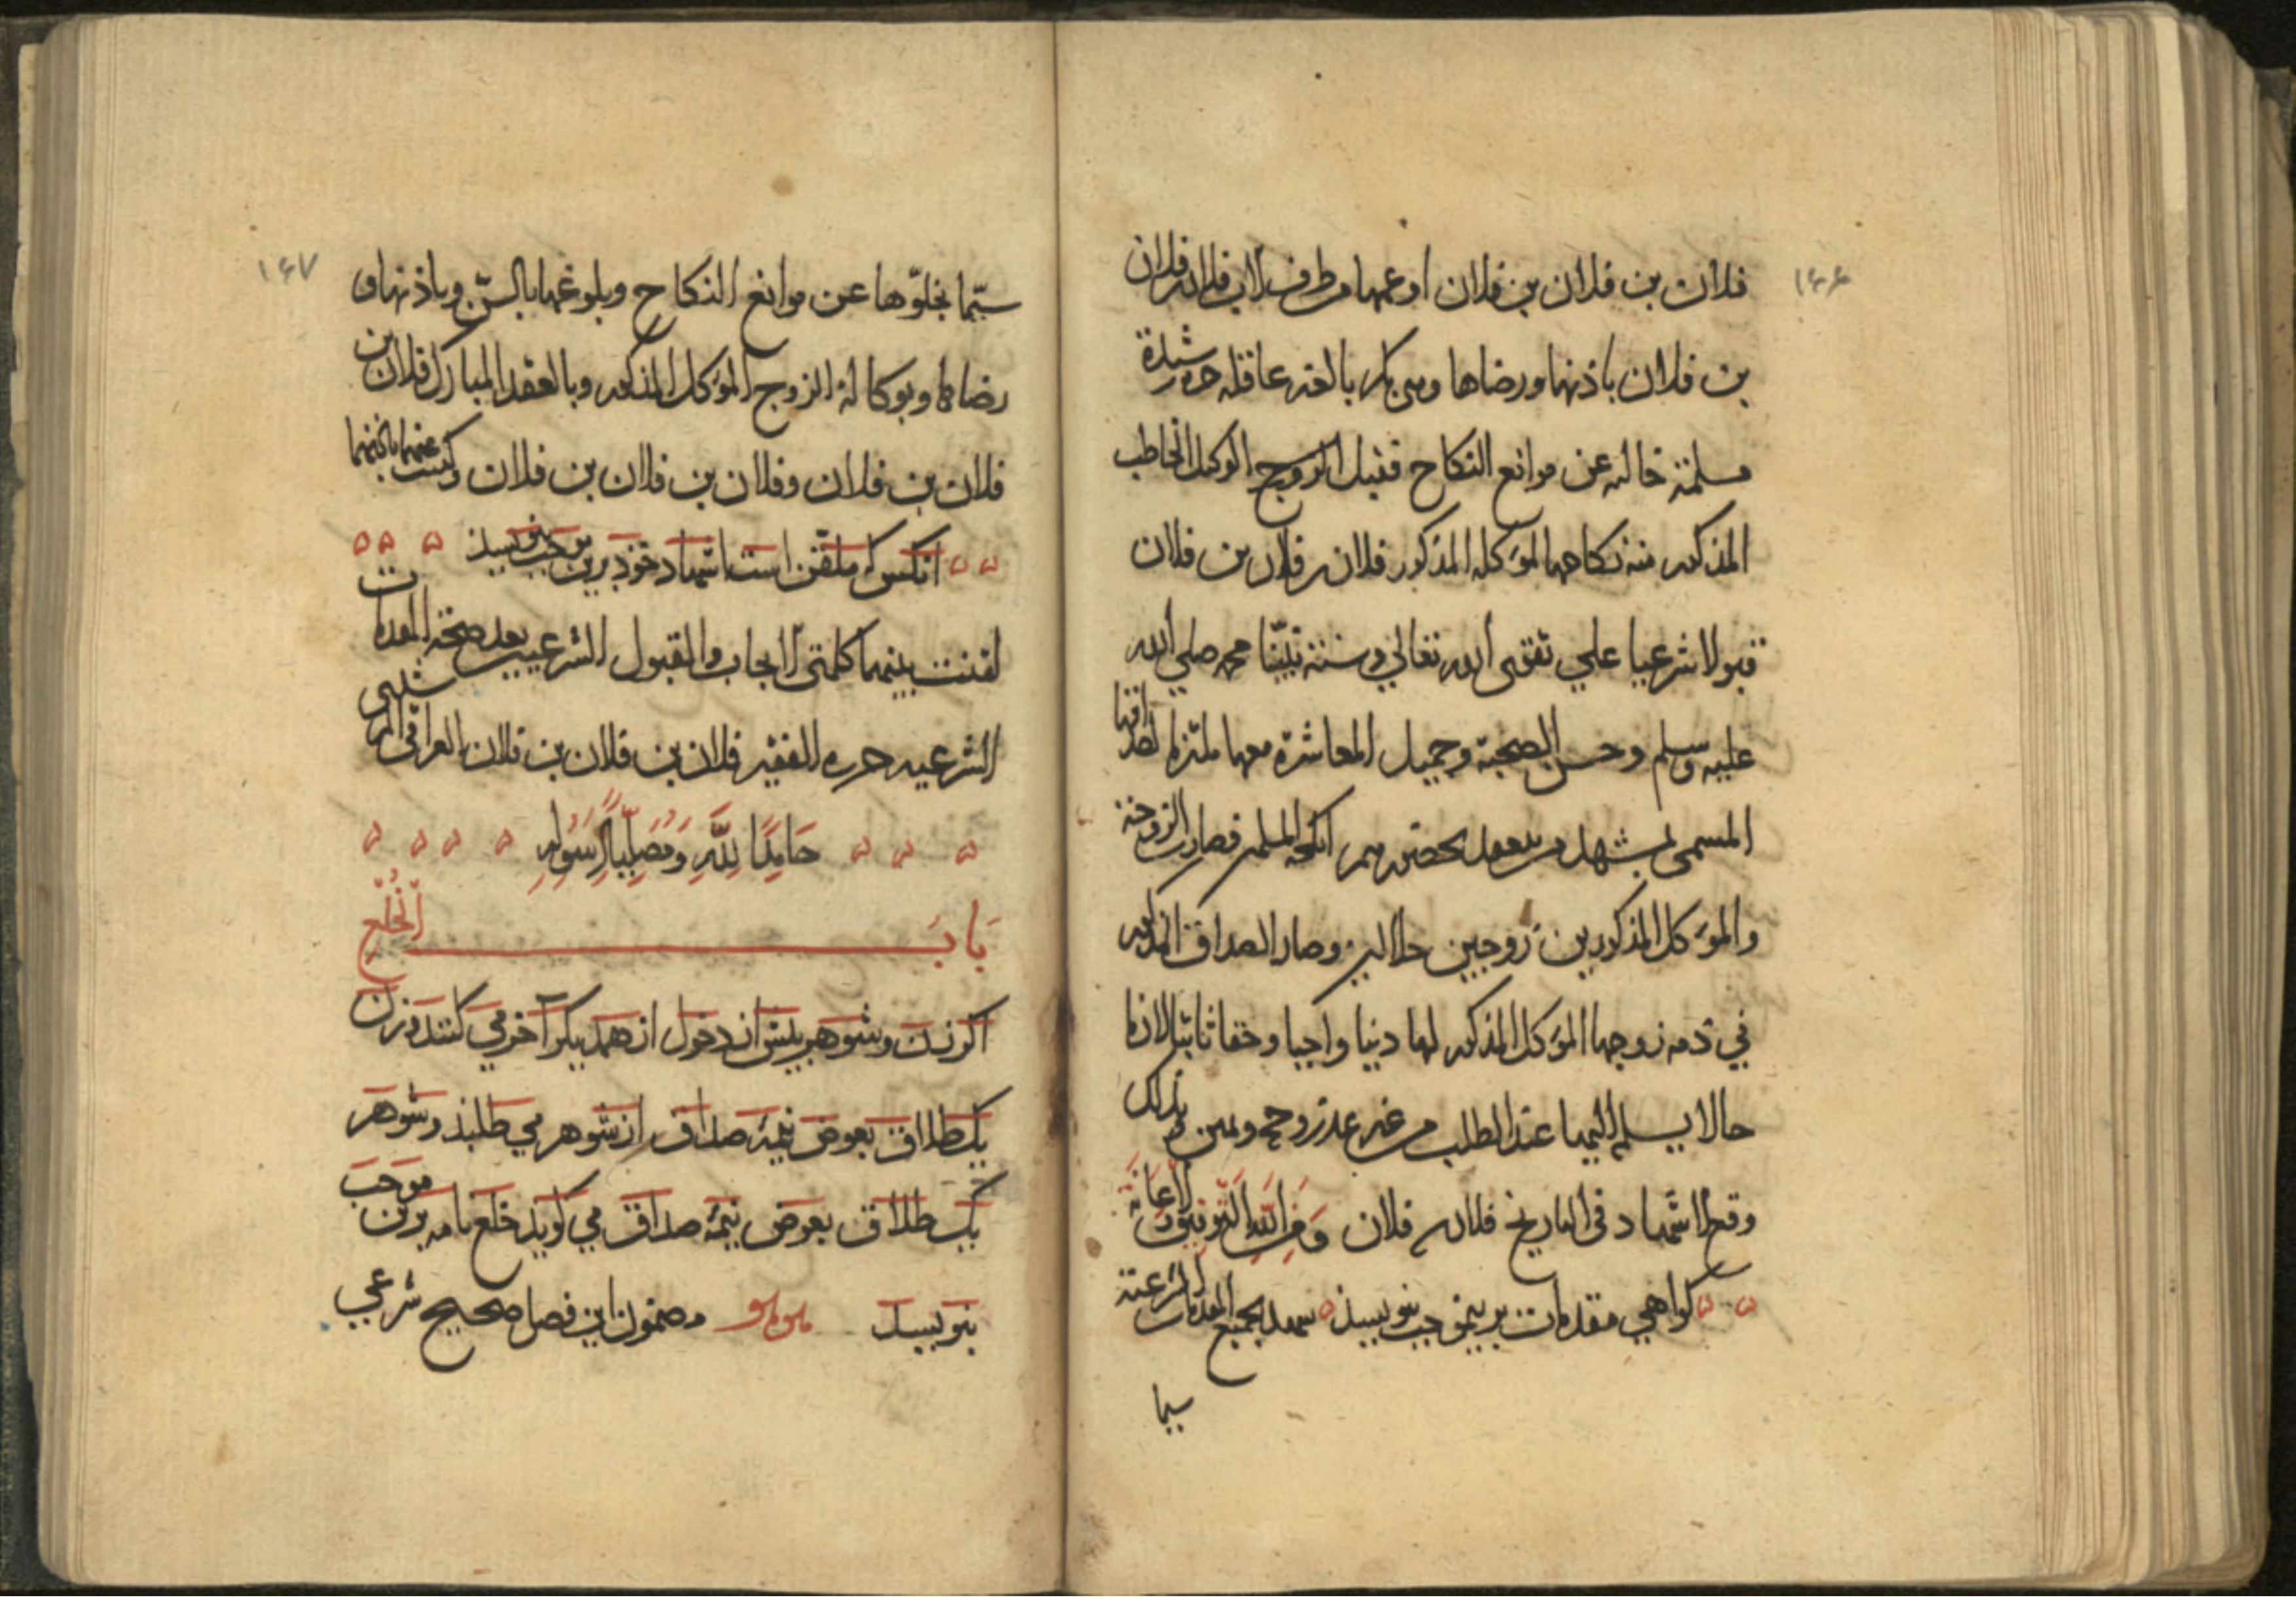 ۱۶۶
فلان بن فلان بن فلان او عمها من طرف الاب فلان بن فلان
بن فلان باذنها ورضاها وهي بكر بالغة عاقلة حرة رشيدة
مسلمة خالية عن موانع النكاح فقبل الزوج الوكيل الخاطب
المذكور منه نكاحها لموكله المذكور فلان بن فلان بن فلان
قبولا شرعيا علي تقوى الله تعالي وسنة نبينا محمد صلي الله
عليه وسلم وحسن الصحبة وجميل المعاشرة معها ملتزما لصداقها
المسمى بمشهد من يعقد بحضرتهم انكحة المسلمين فصارت الزوجة
والموكل المذكورين زوجين حلالين وصار الصداق المذكور
في ذمة زوجها الموكل المذكور لها دينا واجبا وحقا ثابتا لازما
حالا يسلم اليها عند الطلب من غير عذر
وقع الاشهاد في التاريخ فلان فلان ومن الله التوفيق والاعانة
كواهي مقدمات برينموجب بنويسند شهد بجميع المقدمات الشرعية
سيما
۱۶۷
سيّما بخلوّها عن موانع النكاح وبلوغها بالسنّ وباذنها و
رضاها وبوكالة الزوج الموكل المذكور وبالعقد المبارك فلان بن
فلان بن فلان وفلان بن فلان بن فلان وكتبت عنهما باذنهما
انكس كه ملقّن است اشهاد خود برين موجب نويسد
لقنت بينهما كلمتى الايجاب والقبول الشرعيين بعد صحة المقدمات
الشرعيه حرره الفقير فلان بن فلان بن فلان العراقي
حَامِدًا لِلَّهِ وَمُصَلِّيًا لِرَسُولِهِ
بَابَ الْخُلْع
اكر زن وشوهر پيش از دخول از همديكر آخر مي كنند وزن
يك طلاق بعوض نيمه صداق از شوهر مي طلبد وشوهر
يك طلاق بعوض نيمه صداق مي كويد خلع نامه برين موجب
بنويسد مضمون اين فصل صحيح شرعي